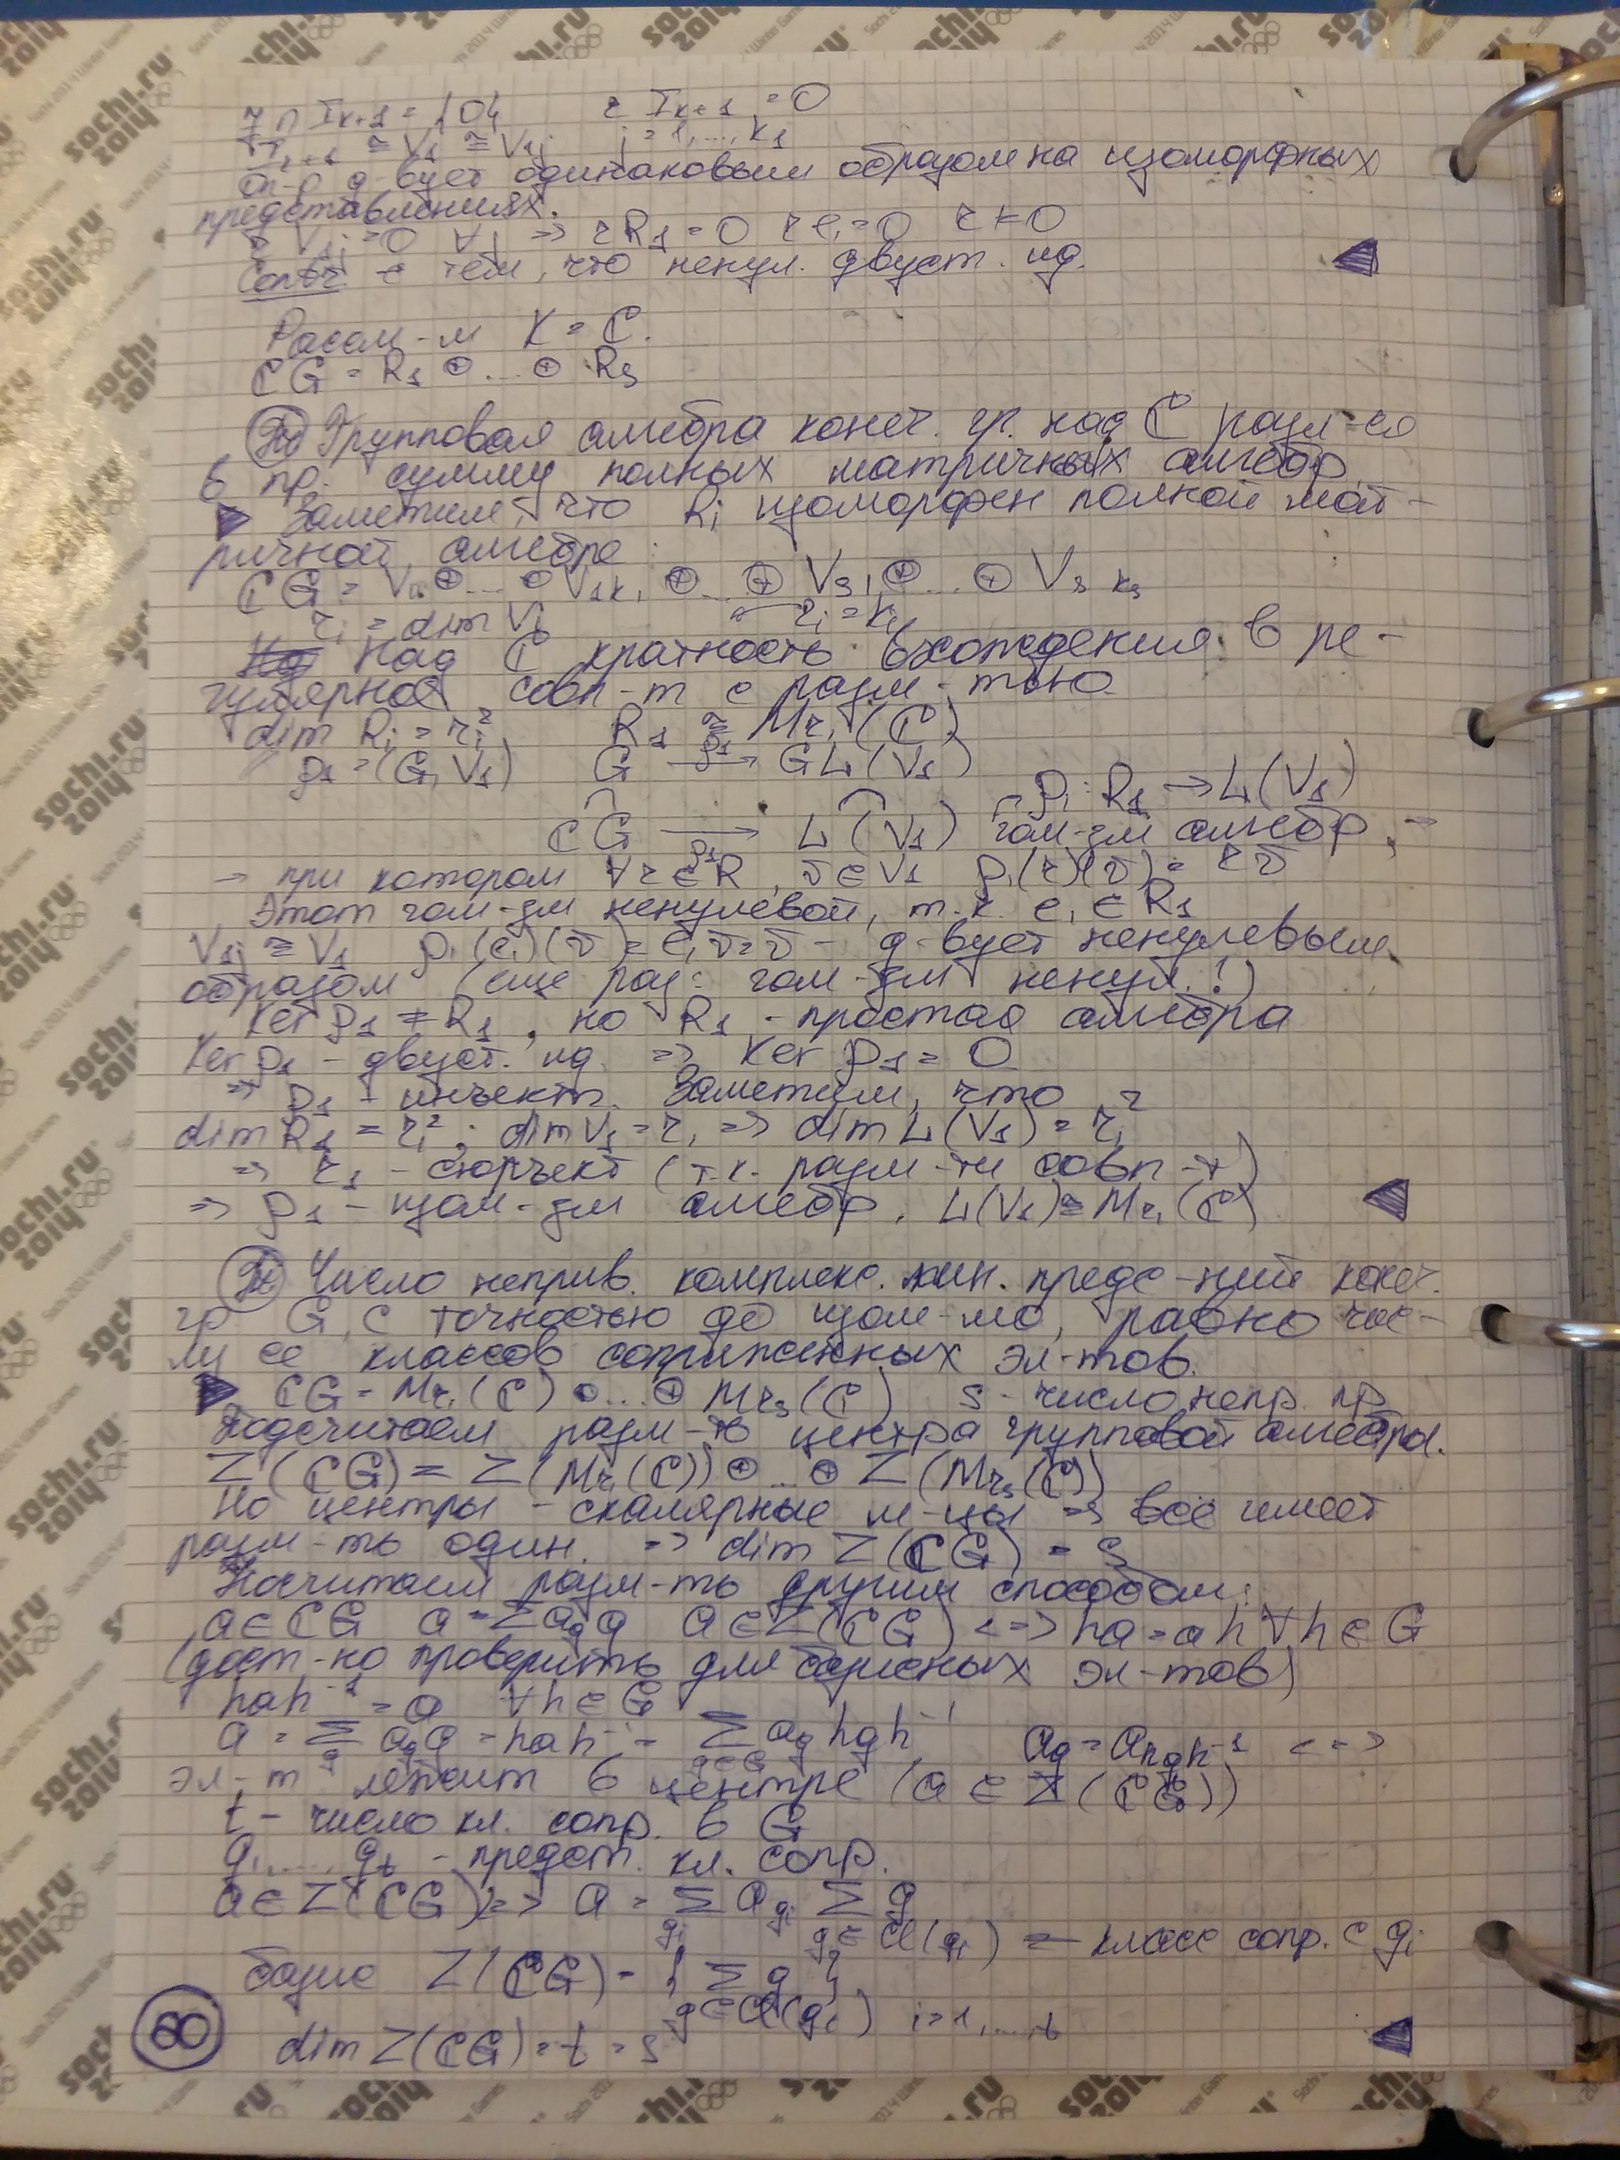 J ∩ I_{k+1} = {0}    r I_{k+1} = 0
I_{k+1} ≅ V_1 ≅ V_{1j}    j = 1,...,k_1
Эл-т д-вует одинаковым образом на изоморфных
представлениях.
r V_{1j} = 0 ∀j => r R_1 = 0   r e_1 = 0   r ≠ 0
с тем, что ненул. двуст. ид.
Рассм-м K = ℂ.
ℂG = R_1 ⊕ ... ⊕ R_s
Th Групповая алгебра конеч. гр. над ℂ разл-ся
в пр. сумму полных матричных алгебр
Заметим, что R_i изоморфен полной мат-
ричной алгебре:
ℂG = V_{11} ⊕ ... ⊕ V_{1k_1} ⊕ ... ⊕ V_{s1} ⊕ ... ⊕ V_{sk_s}
r_i = dim V_i    r_i = k_i
Над ℂ кратность вхождения в ре-
гулярное совп-т с разм-тью
dim R_i = r_i^2    R_1 ≅ M_{r_1}(ℂ)
ρ_1 = (G, V_1)    G →^{ρ_1} GL(V_1)
ρ_1: R_1 → L(V_1)
ℂG →_{ρ_1} L(V_1)   гом-зм алгебр, →
→ при котором ∀r ∈ R, v̄ ∈ V_1   ρ_1(r)(v̄) = r v̄
Этот гом-зм ненулевой, т.к. e_1 ∈ R_1
V_{1j} ≅ V_1   ρ_1(e_1)(v̄) = e_1 v̄ = v̄ - д-вует ненулевым
образом (еще раз: гом-зм ненул.!)
Ker ρ_1 ≠ R_1, но R_1 - простая алгебра
Ker ρ_1 - двуст. ид. => Ker ρ_1 = 0
=> ρ_1 - инъект. Заметим, что
dim R_1 = r_1^2; dim V_1 = r_1 => dim L(V_1) = r_1^2
=> r_1 - сюръект (т.к. разм-ти совп-т)
=> ρ_1 - изом-зм алгебр. L(V_1) ≅ M_{r_1}(ℂ)
Th Число неприв. комплекс. лин. предс-ний конеч.
гр G, с точностью до изом-ма, равно чис-
лу ее классов сопряженных эл-тов.
ℂG = M_{r_1}(ℂ) ⊕ ... ⊕ M_{r_s}(ℂ)   s - число непр. пр.
Подсчитаем разм-ть центра групповой алгебры.
Z(ℂG) = Z(M_{r_1}(ℂ)) ⊕ ... ⊕ Z(M_{r_s}(ℂ))
Но центры - скалярные м-цы => всё имеет
разм-ть один. => dim Z(ℂG) = s
Посчитаем разм-ть другим способом:
a ∈ ℂG   a = Σ a_g g   a ∈ Z(ℂG) <=> ha = ah ∀h ∈ G
(дост-но проверить для базисных эл-тов)
hah^{-1} = a   ∀h ∈ G
a = Σ_g a_g g = hah^{-1} = Σ_{g∈G} a_g hgh^{-1}    a_g = a_{hgh^{-1}} <=>
эл-т лежит в центре (a ∈ Z(ℂG))
t - число кл. сопр. в G
g_1,..., g_t - предст. кл. сопр.
a ∈ Z(ℂG) => a = Σ_{g_i} a_{g_i} Σ_{g ∈ Cl(g_i)} g   — класс сопр. с g_i
базис Z(ℂG) = { Σ_{g ∈ Cl(g_i)} g }   i = 1,...,t
60
dim Z(ℂG) = t = s
sochi.ru
2014